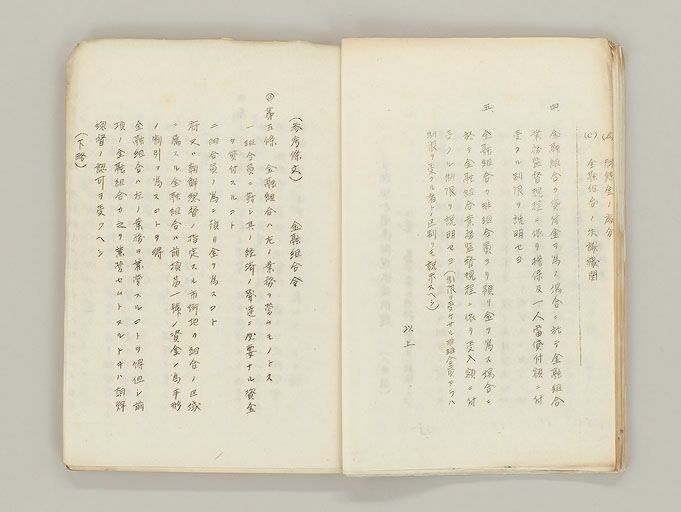 (A) 剰余金ノ処分
(C) 金融組合ノ決議機関
四、金融組合カ貸付金ヲ為ス場合ニ於テ金融組合
業務監督規程ニ依リ擔保及一人當貸付額ニ付
受クル制限ヲ説明セヨ
五、金融組合カ非組合員ヨリ預リ金ヲ為ス場合ニ
於テ金融組合業務監督規程ニ依リ受入額ニ付
受クル制限ヲ説明セヨ
制限ヲ受クル者トノ区別ヲモ説示スヘシ)
以上
(参考條文) 金融組合令
第五條 金融組合ハ左ノ業務ヲ営ムモノトス
一 組合員ニ對シ其ノ経済ノ発達ニ必要ナル資金
ヲ貸付スルコト
二 組合員ノ為ニ預リ金ヲ為スコト
府又ハ朝鮮総督ノ指定スル市街地ヲ組合ノ区域
ニ属スル金融組合ハ前項第一號ノ資金ノ為手形
ノ割引ヲ為スコトヲ得
金融組合ハ左ノ業務ヲ兼営スルコトヲ得但シ前
項ノ金融組合カ之ヲ兼営セムトスルトキハ朝鮮
総督ノ認可ヲ受クヘシ
(下略)